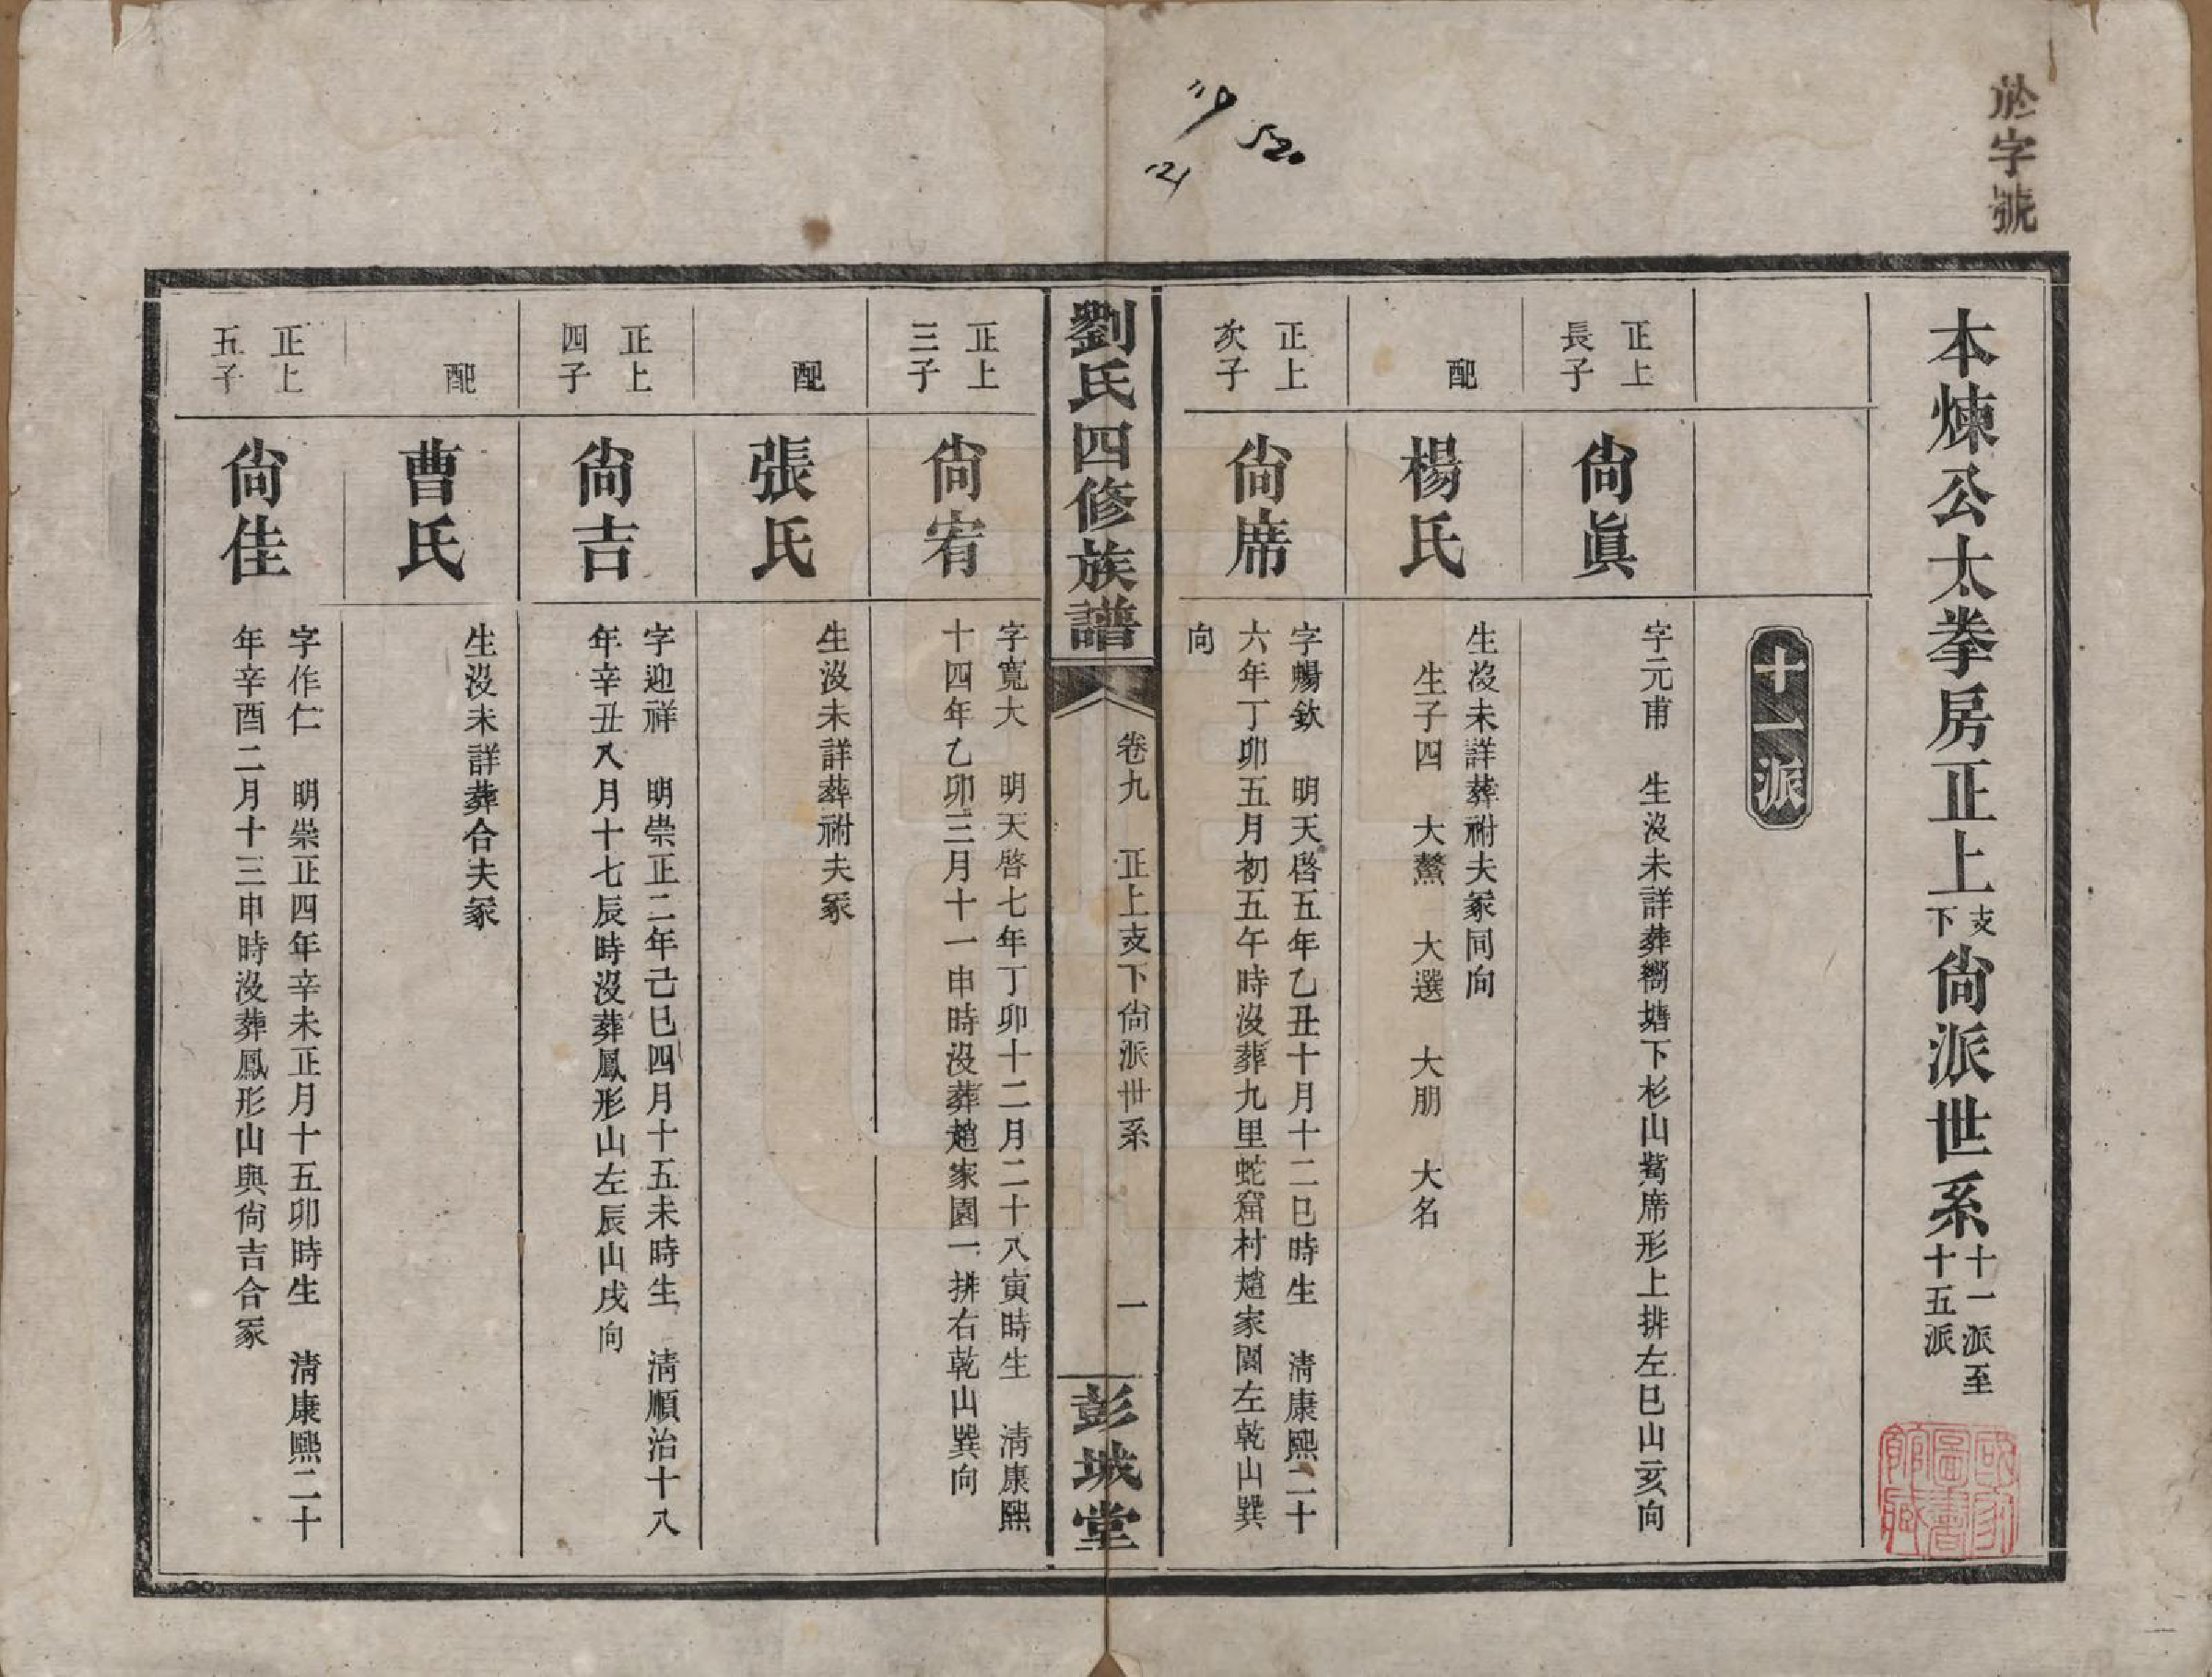 於字號
本煉公太拳房正上支下尙派世系十一派至十五派
國家圖書館藏
十一派
正上
長子
尙眞
字元甫　生沒未詳葬衕塘下杉山觜席形上排左巳山亥向
配
楊氏
生沒未詳葬祔夫冢同向
生子四　大鰲　大選　大朋　大名
正上
次子
尙席
字暢欽　明天啓五年乙丑十月十二巳時生　淸康熙二十
六年丁卯五月初五午時沒葬九里蛇窟村趙家園左乾山巽
向
劉氏四修族譜
卷九　正上支下尙派世系　一
彭城堂
正上
三子
尙宥
字寬大　明天啓七年丁卯十二月二十八寅時生　淸康熙
十四年乙卯三月十一申時沒葬趙家園一排右乾山巽向
配
張氏
生沒未詳葬祔夫冢
正上
四子
尙吉
字迎祥　明崇正二年己巳四月十五未時生　淸順治十八
年辛丑八月十七辰時沒葬鳳形山左辰山戌向
配
曹氏
生沒未詳葬合夫冢
正上
五子
尙佳
字作仁　明崇正四年辛未正月十五卯時生　淸康熙二十
年辛酉二月十三申時沒葬鳳形山與尙吉合冢
520
21